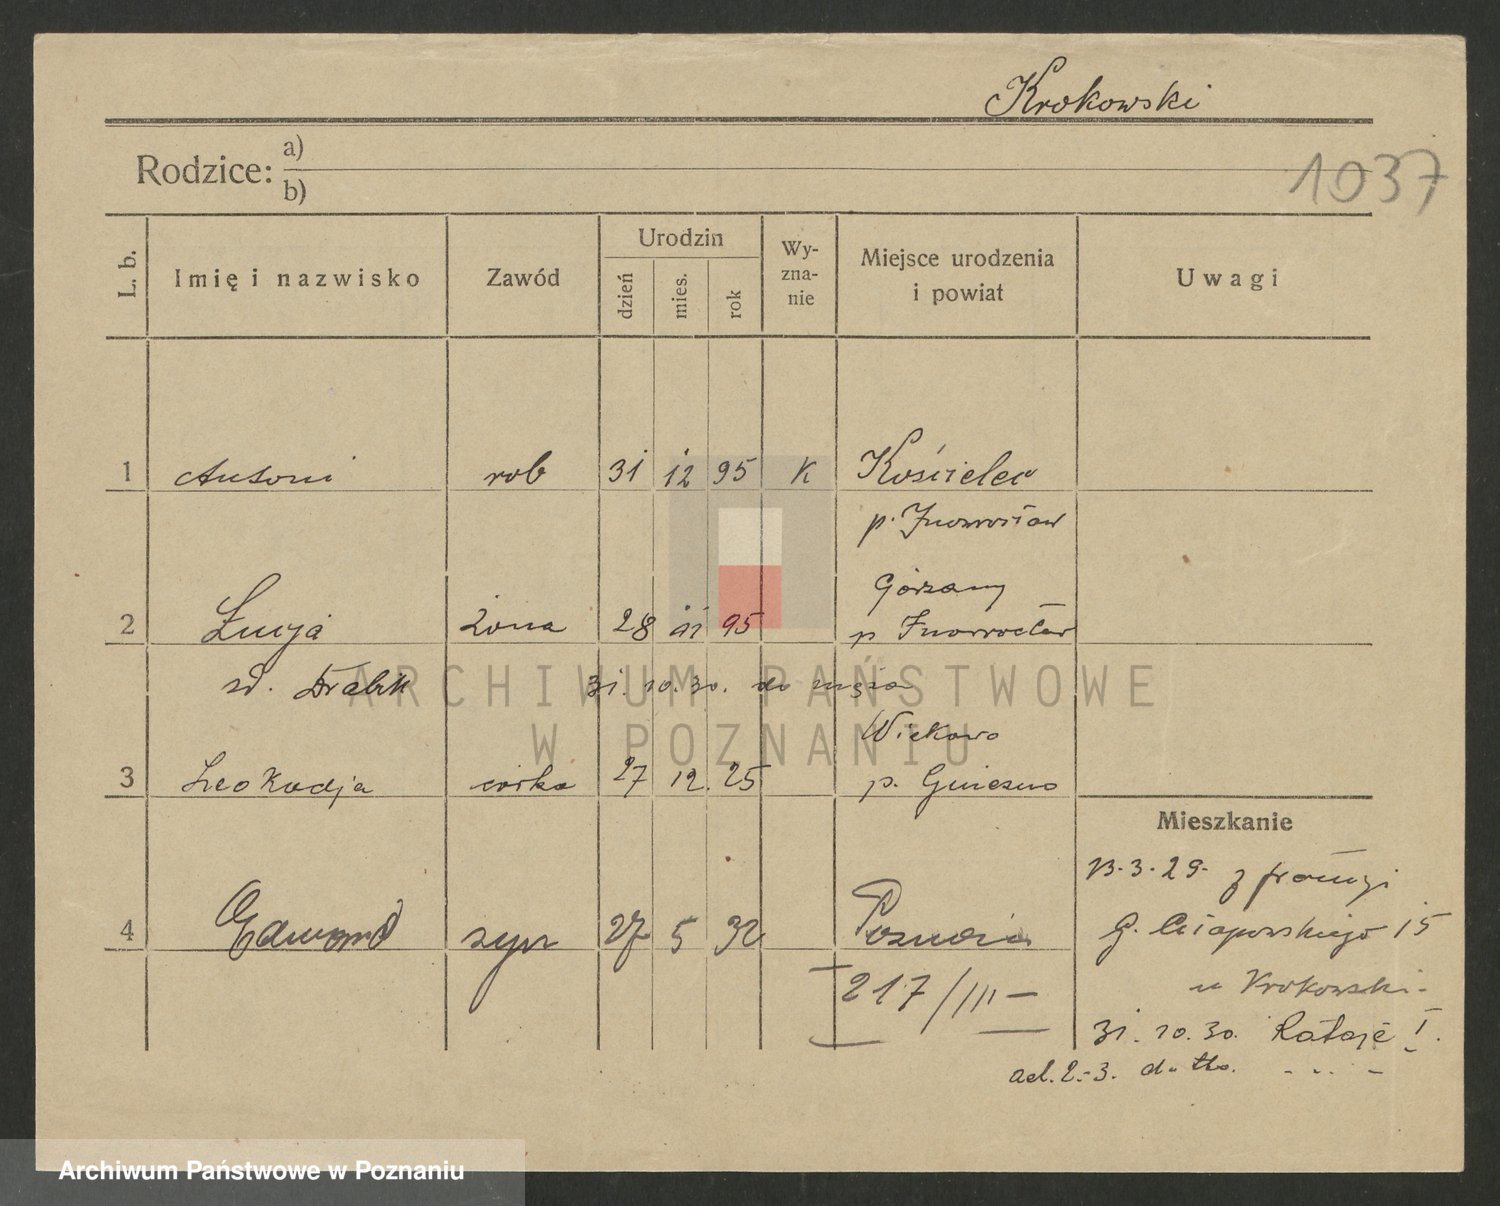 Krokowski
1037
Rodzice: a)
b)
L. b.
Imię i nazwisko
Zawód
Urodzin
dzień
mies.
rok
Wy-
zna-
nie
Miejsce urodzenia
i powiat
Uwagi
1 Antoni rob 31 12 95 K Kościelec
p. Inowrocław
Górzany
2 Łucja żona 28 11 95 p Inowrocław
zd. Drabik 31. 10. 30. do męża
Wiekowo
3 Leokadja córka 27 12. 25 p. Gniezno
Mieszkanie
13. 3. 29. z
4 Edmund syn 27 5 32 Poznań
G. 15
217/III
u Krokowski
31. 10. 30. Rataje I.
ad. 2.-3. dtto.
ARCHIWUM PAŃSTWOWE
W POZNANIU
Archiwum Państwowe w Poznaniu